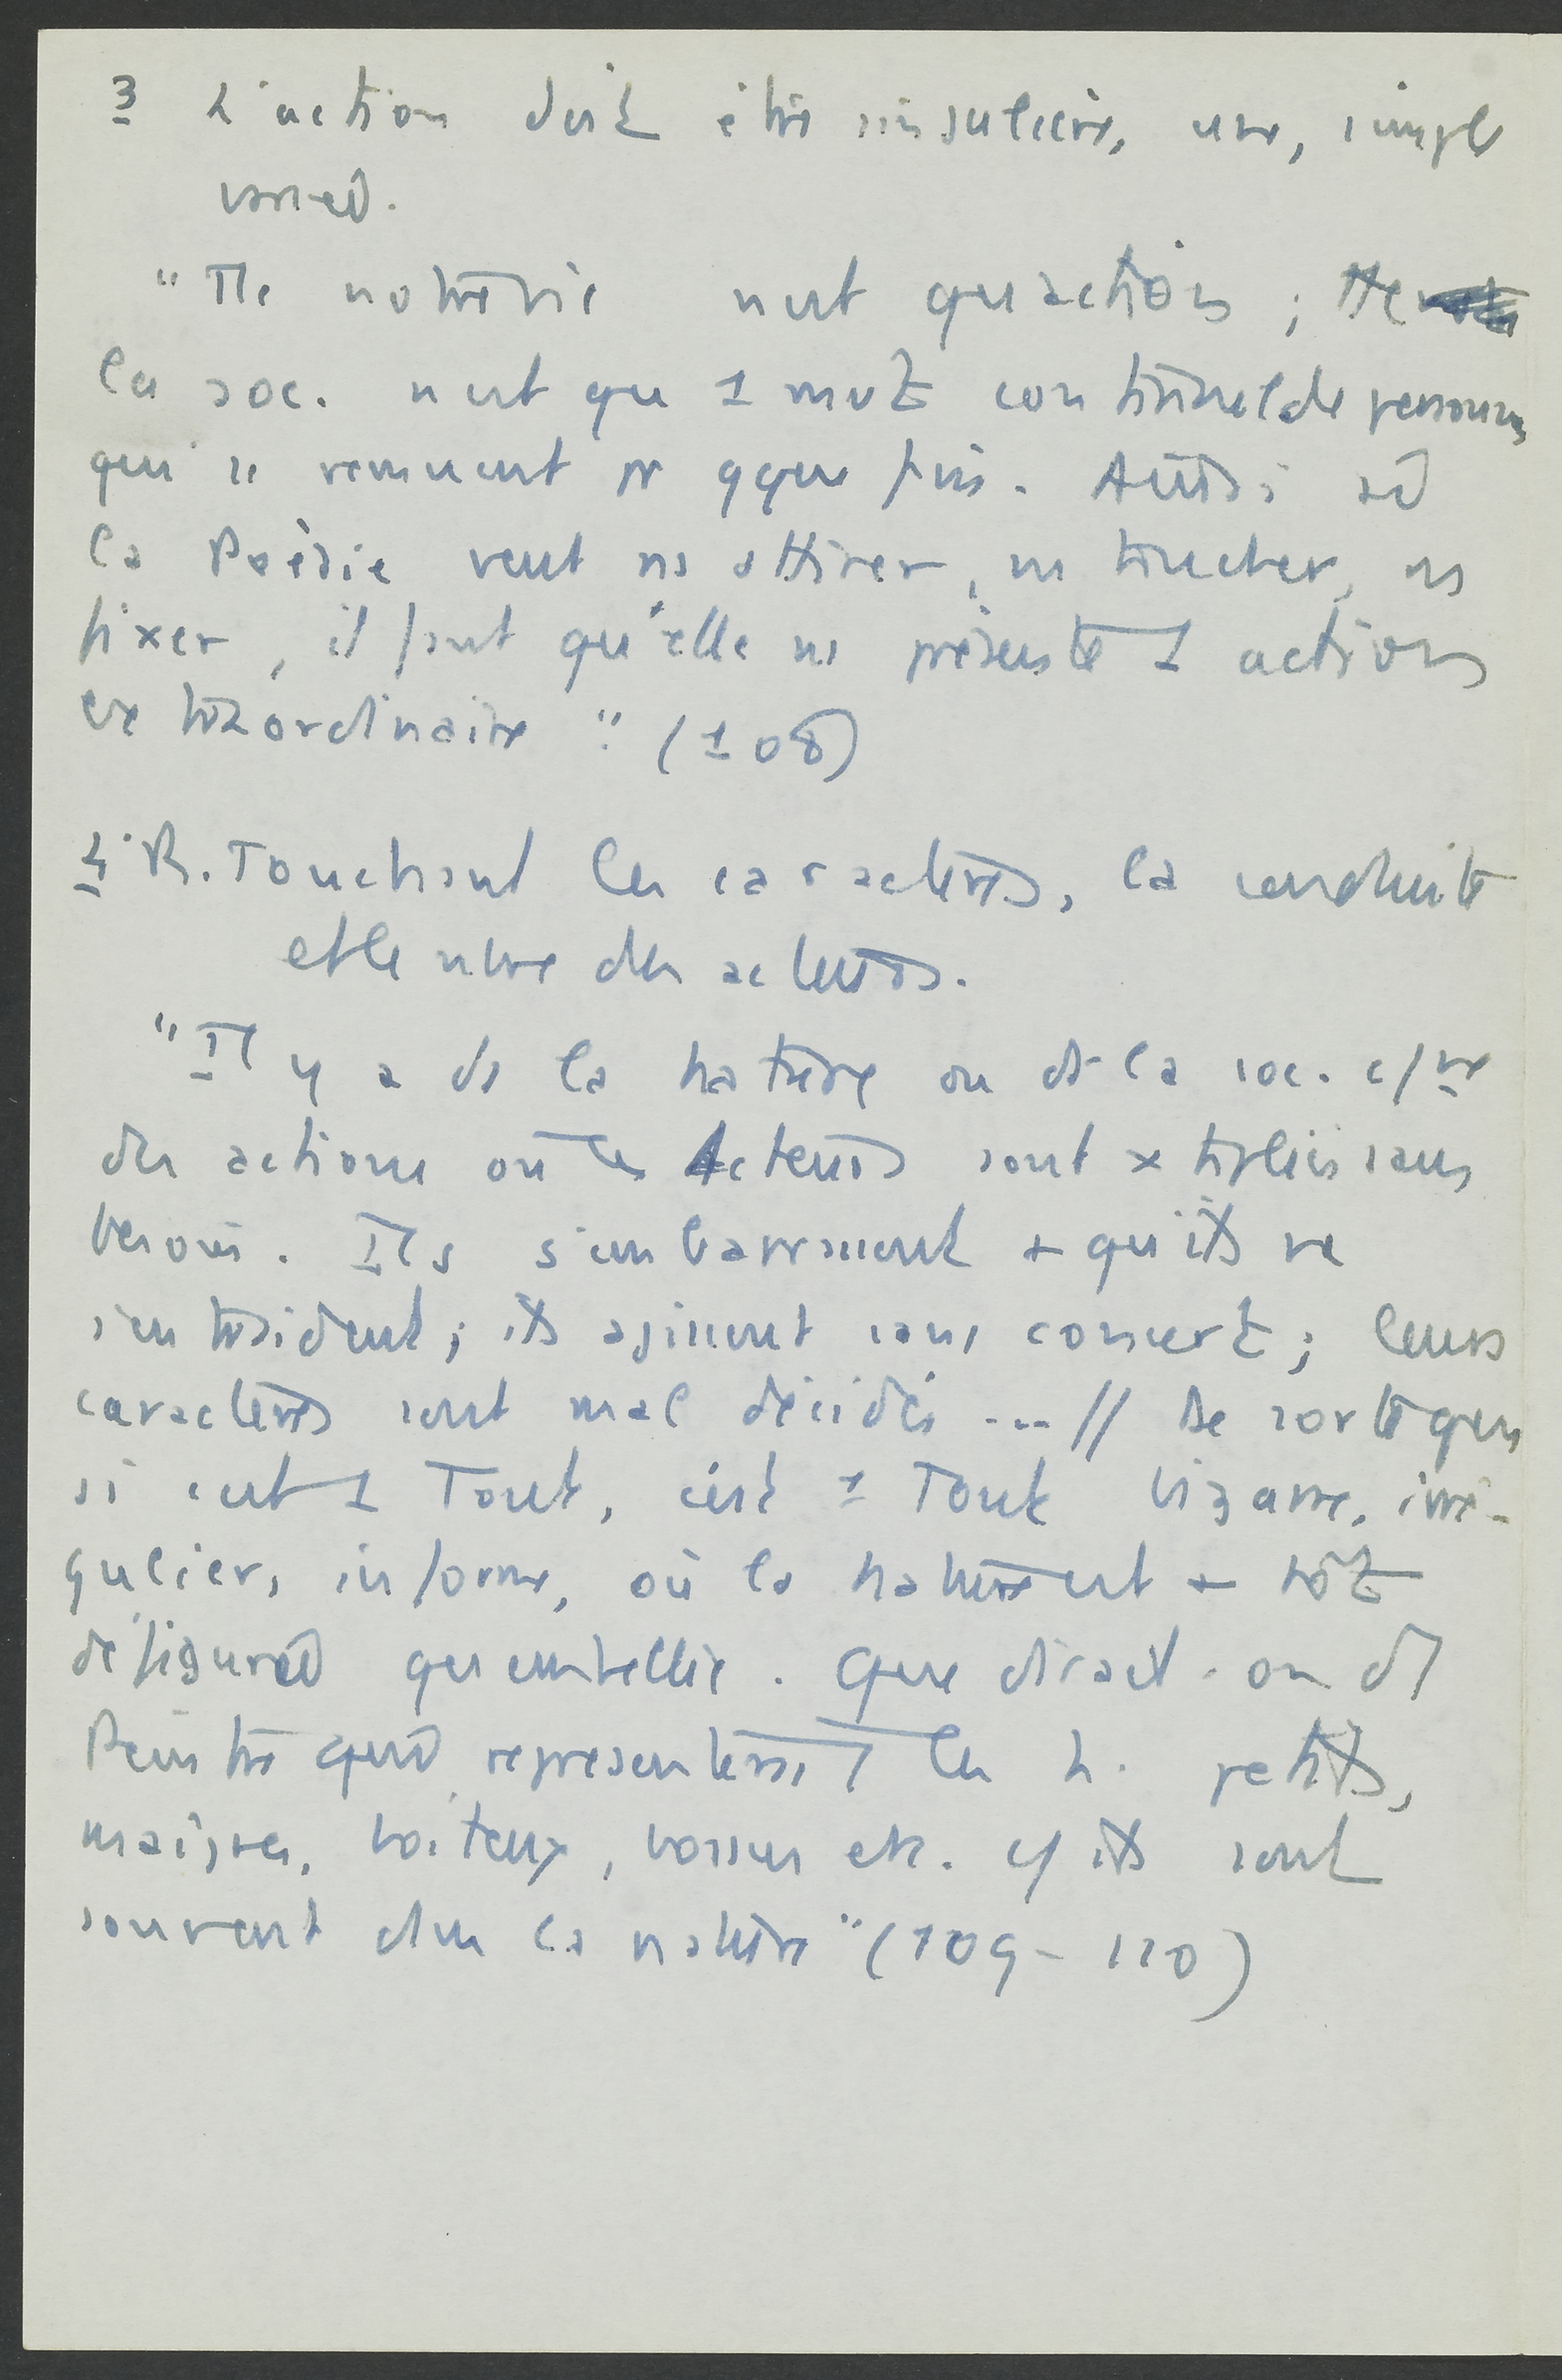 3 L'action doit être singulière, une, simple
variée.
"Tte notre vie n'est qu'action ; tte
la soc. n'est qu'1 mvt continuel de personnes
qui se remuent pr qque fin. Aussi si
la Poésie veut ns attirer, ns toucher, ns
fixer, il faut qu'elle ns présente 1 action
extraordinaire". (108)
4 R. Touchant les caractères, la conduite
et le nbre des acteurs.
"Il y a ds la nature ou ds la soc. c/ne
des actions où les Acteurs sont xtipliés sans
besoin. Ils s'embarrassent + qu'ils ne
s'entraident ; ils agissent sans concert ; leurs
caractères sont mal décidés ... // De sorte que
si c'est 1 Tout, c'est 1 Tout bizarre, irré-
gulier, informe, où la nature est + tôt
défigurée qu'embellie. Que dirait-on d'1
Peintre qui représenterait les h. petits,
maigres, boiteux, bossus etc. c/ ils sont
souvent dans la nature" (109-110)